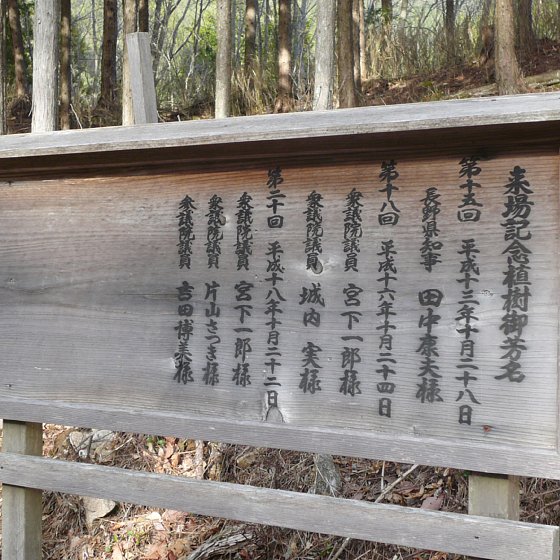 来場記念植樹御芳名
第十五回 平成十三年十月二十八日
長野県知事 田中康夫様
第十八回 平成十六年十月二十四日
衆議院議員 宮下一郎様
衆議院議員 城内 実様
第二十回 平成十八年十月二十二日
衆議院議員 宮下一郎様
衆議院議員 片山さつき様
衆議院議員 吉田博美様